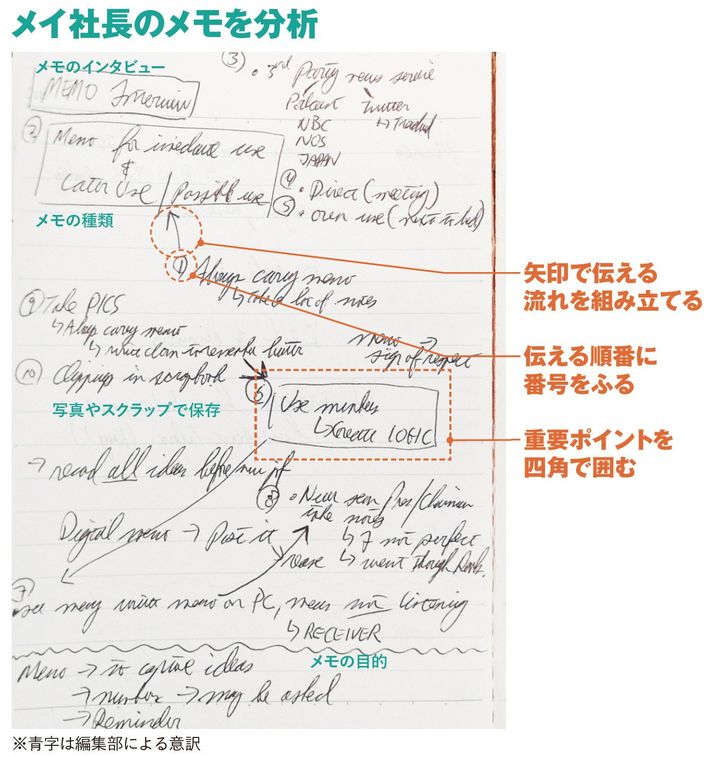 メイ社長のメモを分析
メモのインタビュー
MEMO Interview
③ • 3rd Party news service
Podcast Twitter
NBC
NOS
JAPAN
② Memo for immediate use
&
Later Use / Possible use
④ • Direct (meeting)
⑤ • own use (next to bed)
メモの種類
① Always carry memo
↳ take a lot of notes
矢印で伝える
流れを組み立てる
⑨ Take PICS
↳ Always carry memo
↳ write down to remember better
memo →
sign of respect
伝える順番に
番号をふる
⑩ Clippings in scrapbook
写真やスクラップで保存
⑥ Use numbers
↳ Create LOGIC
重要ポイントを
四角で囲む
→ record all ideas before
⑧ • Never seen Pres/Chairman
take notes
↳ 7 not perfect
Digital memo → Post it
↳ went through
⑦
• see many write memo on PC, means not listening
↳ RECEIVER
メモの目的
Memo → to capture ideas
→ number → may be asked
→ Reminder
※青字は編集部による意訳